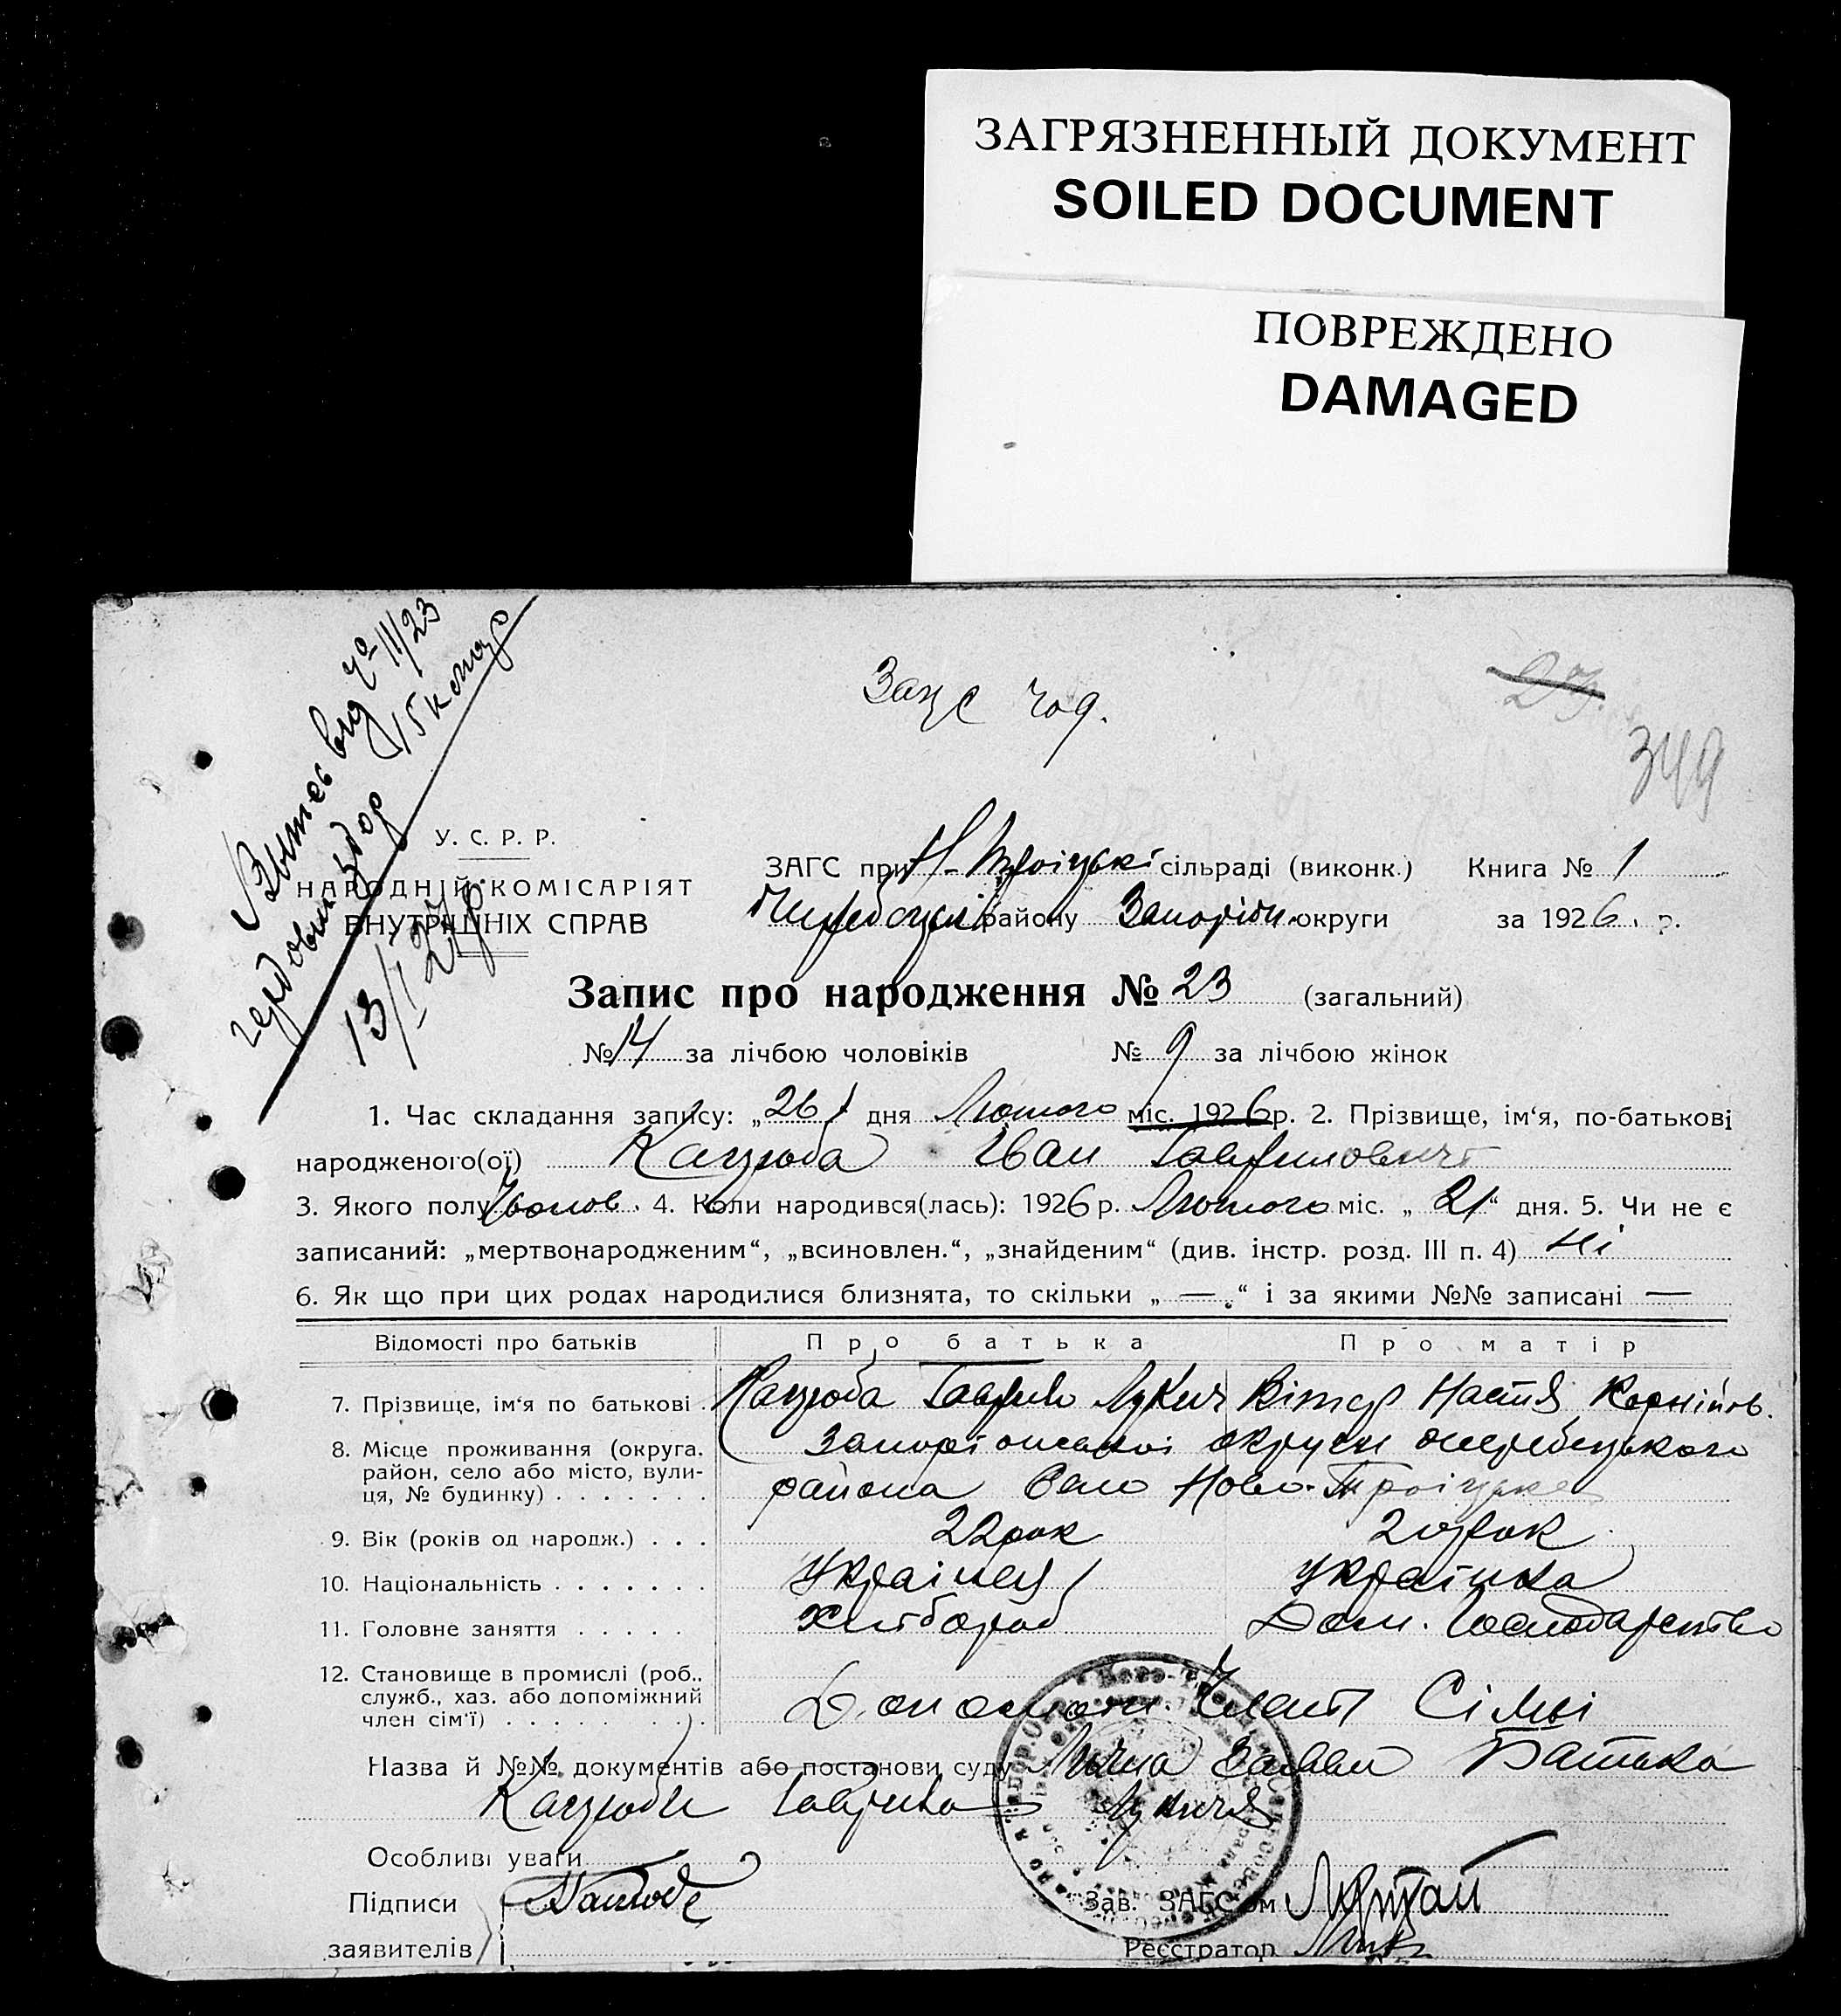 ЗАГРЯЗНЕННЫЙ ДОКУМЕНТ
SOILED DOCUMENT
ПОВРЕЖДЕНО
DAMAGED
349
У. С. Р. Р.
НАРОДНІЙ КОМІСАРІЯТ
ВНУТРІШНІХ СПРАВ
13/I 27
ЗАГС при Н-Троіцькі сільраді (виконк.) Книга № 1
району Запоріж. округи за 1926. р.
Запис про народження № 23 (загальний)
№ 14 за лічбою чоловіків № 9 за лічбою жінок
1. Час складання запису: „26“ дня Лютого міс. 1926 р. 2. Прізвище, ім‘я, по-батькові
народженого(ої) Кацюба Іван Гаврилович
3. Якого полу Чолов. 4. Коли народився(лась): 1926 р. Лютого міс. „21“ дня. 5. Чи не є
записаний: „мертвонародженим“, „всиновлен.“, „знайденим“ (див. інстр. розд. III п. 4) Ні
6. Як що при цих родах народилися близнята, то скільки „ — “ і за якими №№ записані —
Відомості про батьків Про батька Про матір
7. Прізвище, ім‘я по батькові Кацюба Гаврило Лукич Вітер Настя Корнійов.
8. Місце проживання (округа, район, село або місто, вулиця, № будинку) Запоріжськоі округи жеребецького
района Село Ново-Троіцьке
9. Вік (років од народж.) 22 рок 20 рок
10. Національність Украінец Украінка
11. Головне заняття Хлібороб Дом. Господарство
12. Становище в промислі (роб., служб., хаз. або допоміжний член сім‘ї) Допоможн. Член Сімьі
Назва й №№ документів або постанови суду Лична Заява Батька
Кацюби Гаврила Лукича
Особливі уваги
Підписи Зав. ЗАГС‘ом
заявителів Реєстратор